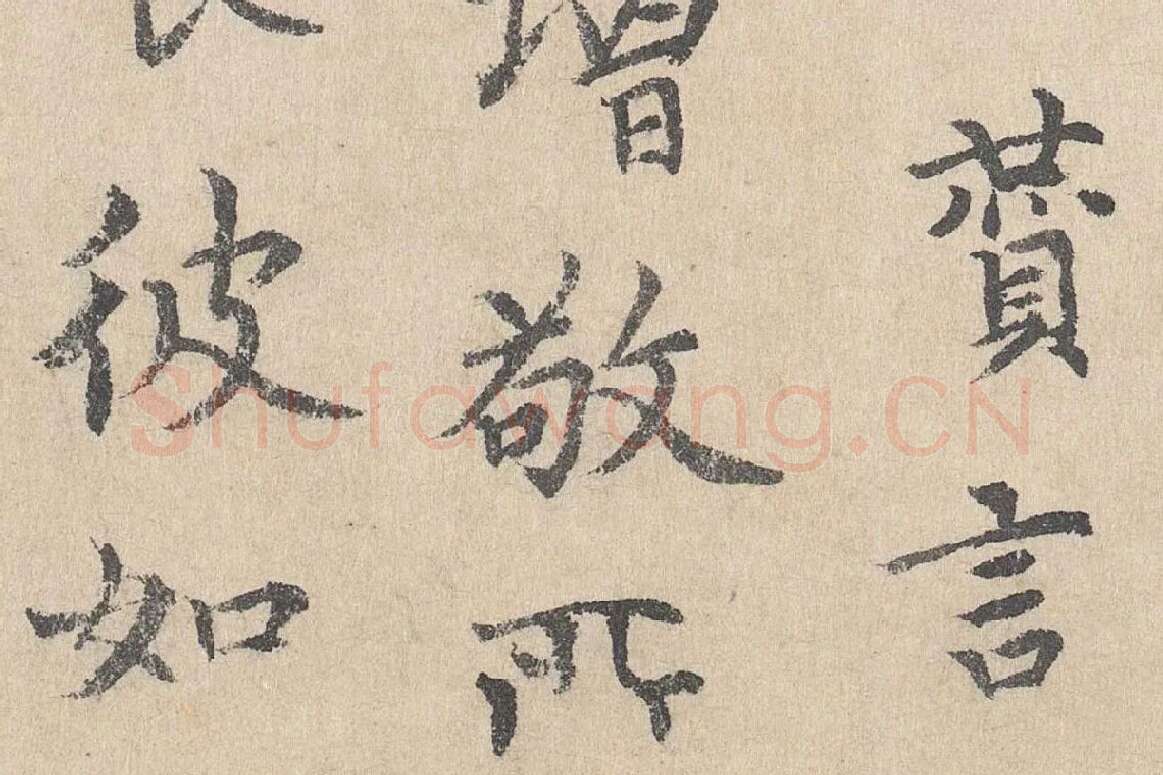 言
增敬所
彼如
Shufawang.CN